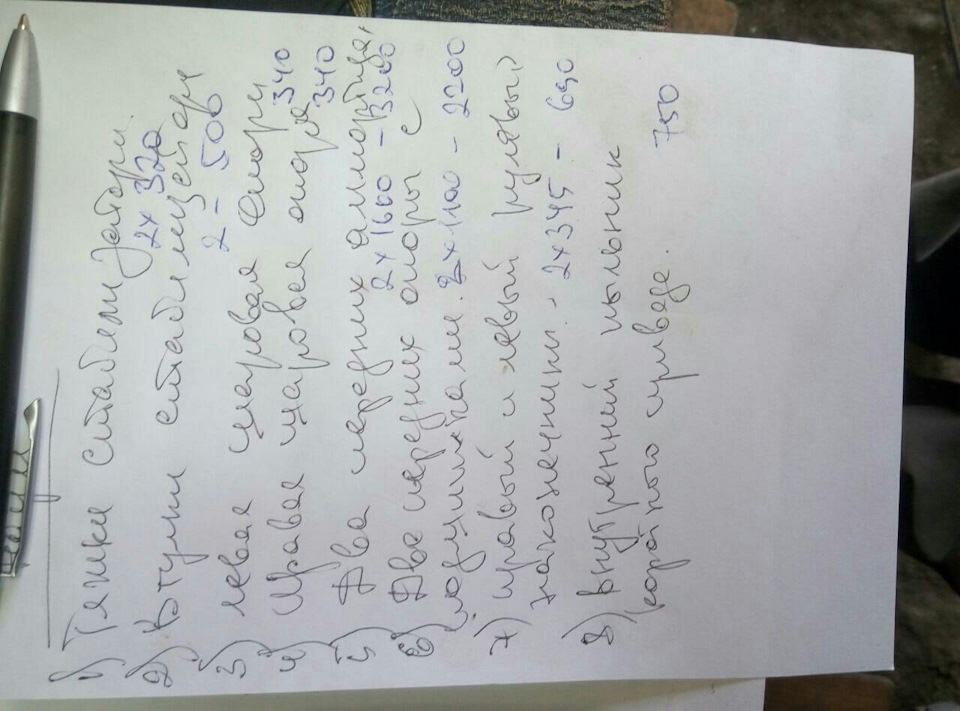 1) Тяжки стабилизатора.
2 х 320
2) Втулки стабилизатора
2 - 500
3) левая шаровая опора
340
4) Правая шаровая опора
340
5) Два передних аммортиза.
2 х 1600 - 3200
6) Две передних опоры с
подшипками. 2 х 1100 - 2200
7) правый и левый рулевый
наконечники. - 2 х 345 - 690
8) внутренний пыльник
короткого привода.
750